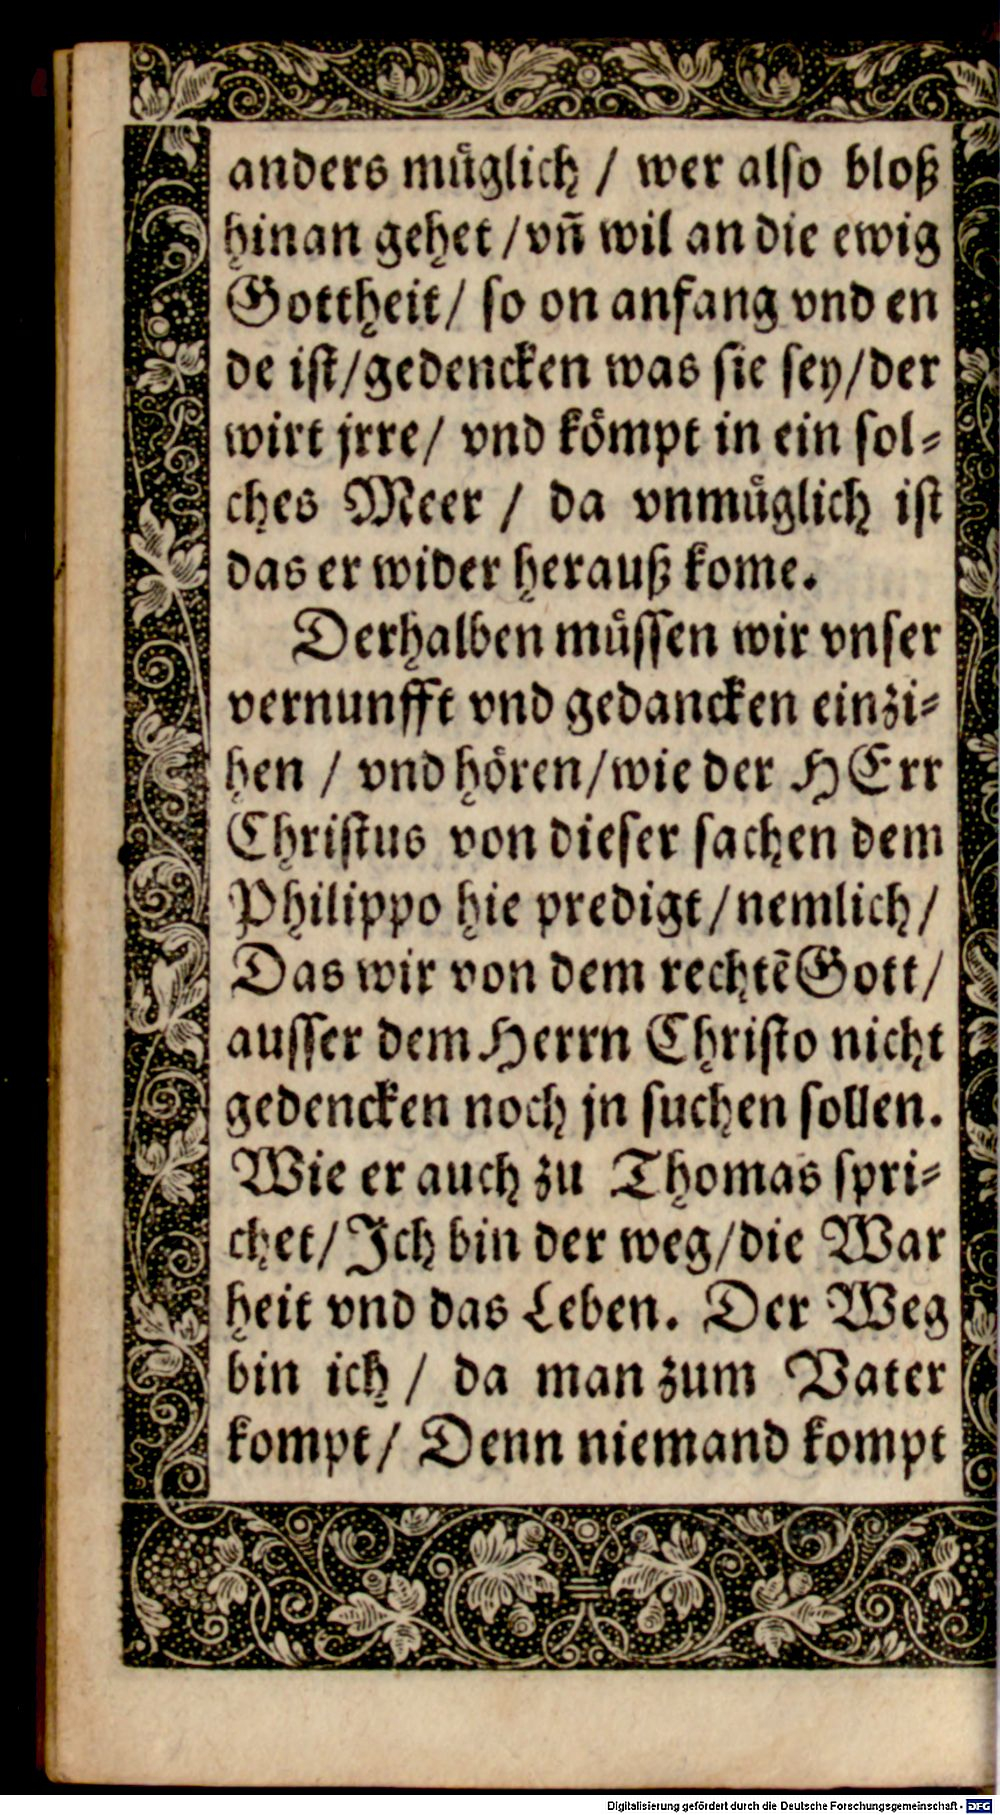 anders muͤglich / wer also bloß
hinan gehet / vñ wil an die ewig
Gottheit / so on anfang vnd en
de ist / gedencken was sie sey / der
wirt jrre / vnd koͤmpt in ein sol⸗
ches Meer / da vnmuͤglich ist
das er wider herauß kome.
Derhalben muͤssen wir vnser
vernunfft vnd gedancken einzi⸗
hen / vnd hoͤren / wie der HErr
Christus von dieser sachen dem
Philippo hie predigt / nemlich /
Das wir von dem rechtẽ Gott /
ausser dem Herrn Christo nicht
gedencken noch jn suchen sollen.
Wie er auch zu Thomas spri⸗
chet / Ich bin der weg / die War
heit vnd das Leben. Der Weg
bin ich / da man zum Vater
kompt / Denn niemand kompt
Digitalisierung gefördert durch die Deutsche Forschungsgemeinschaft - DFG